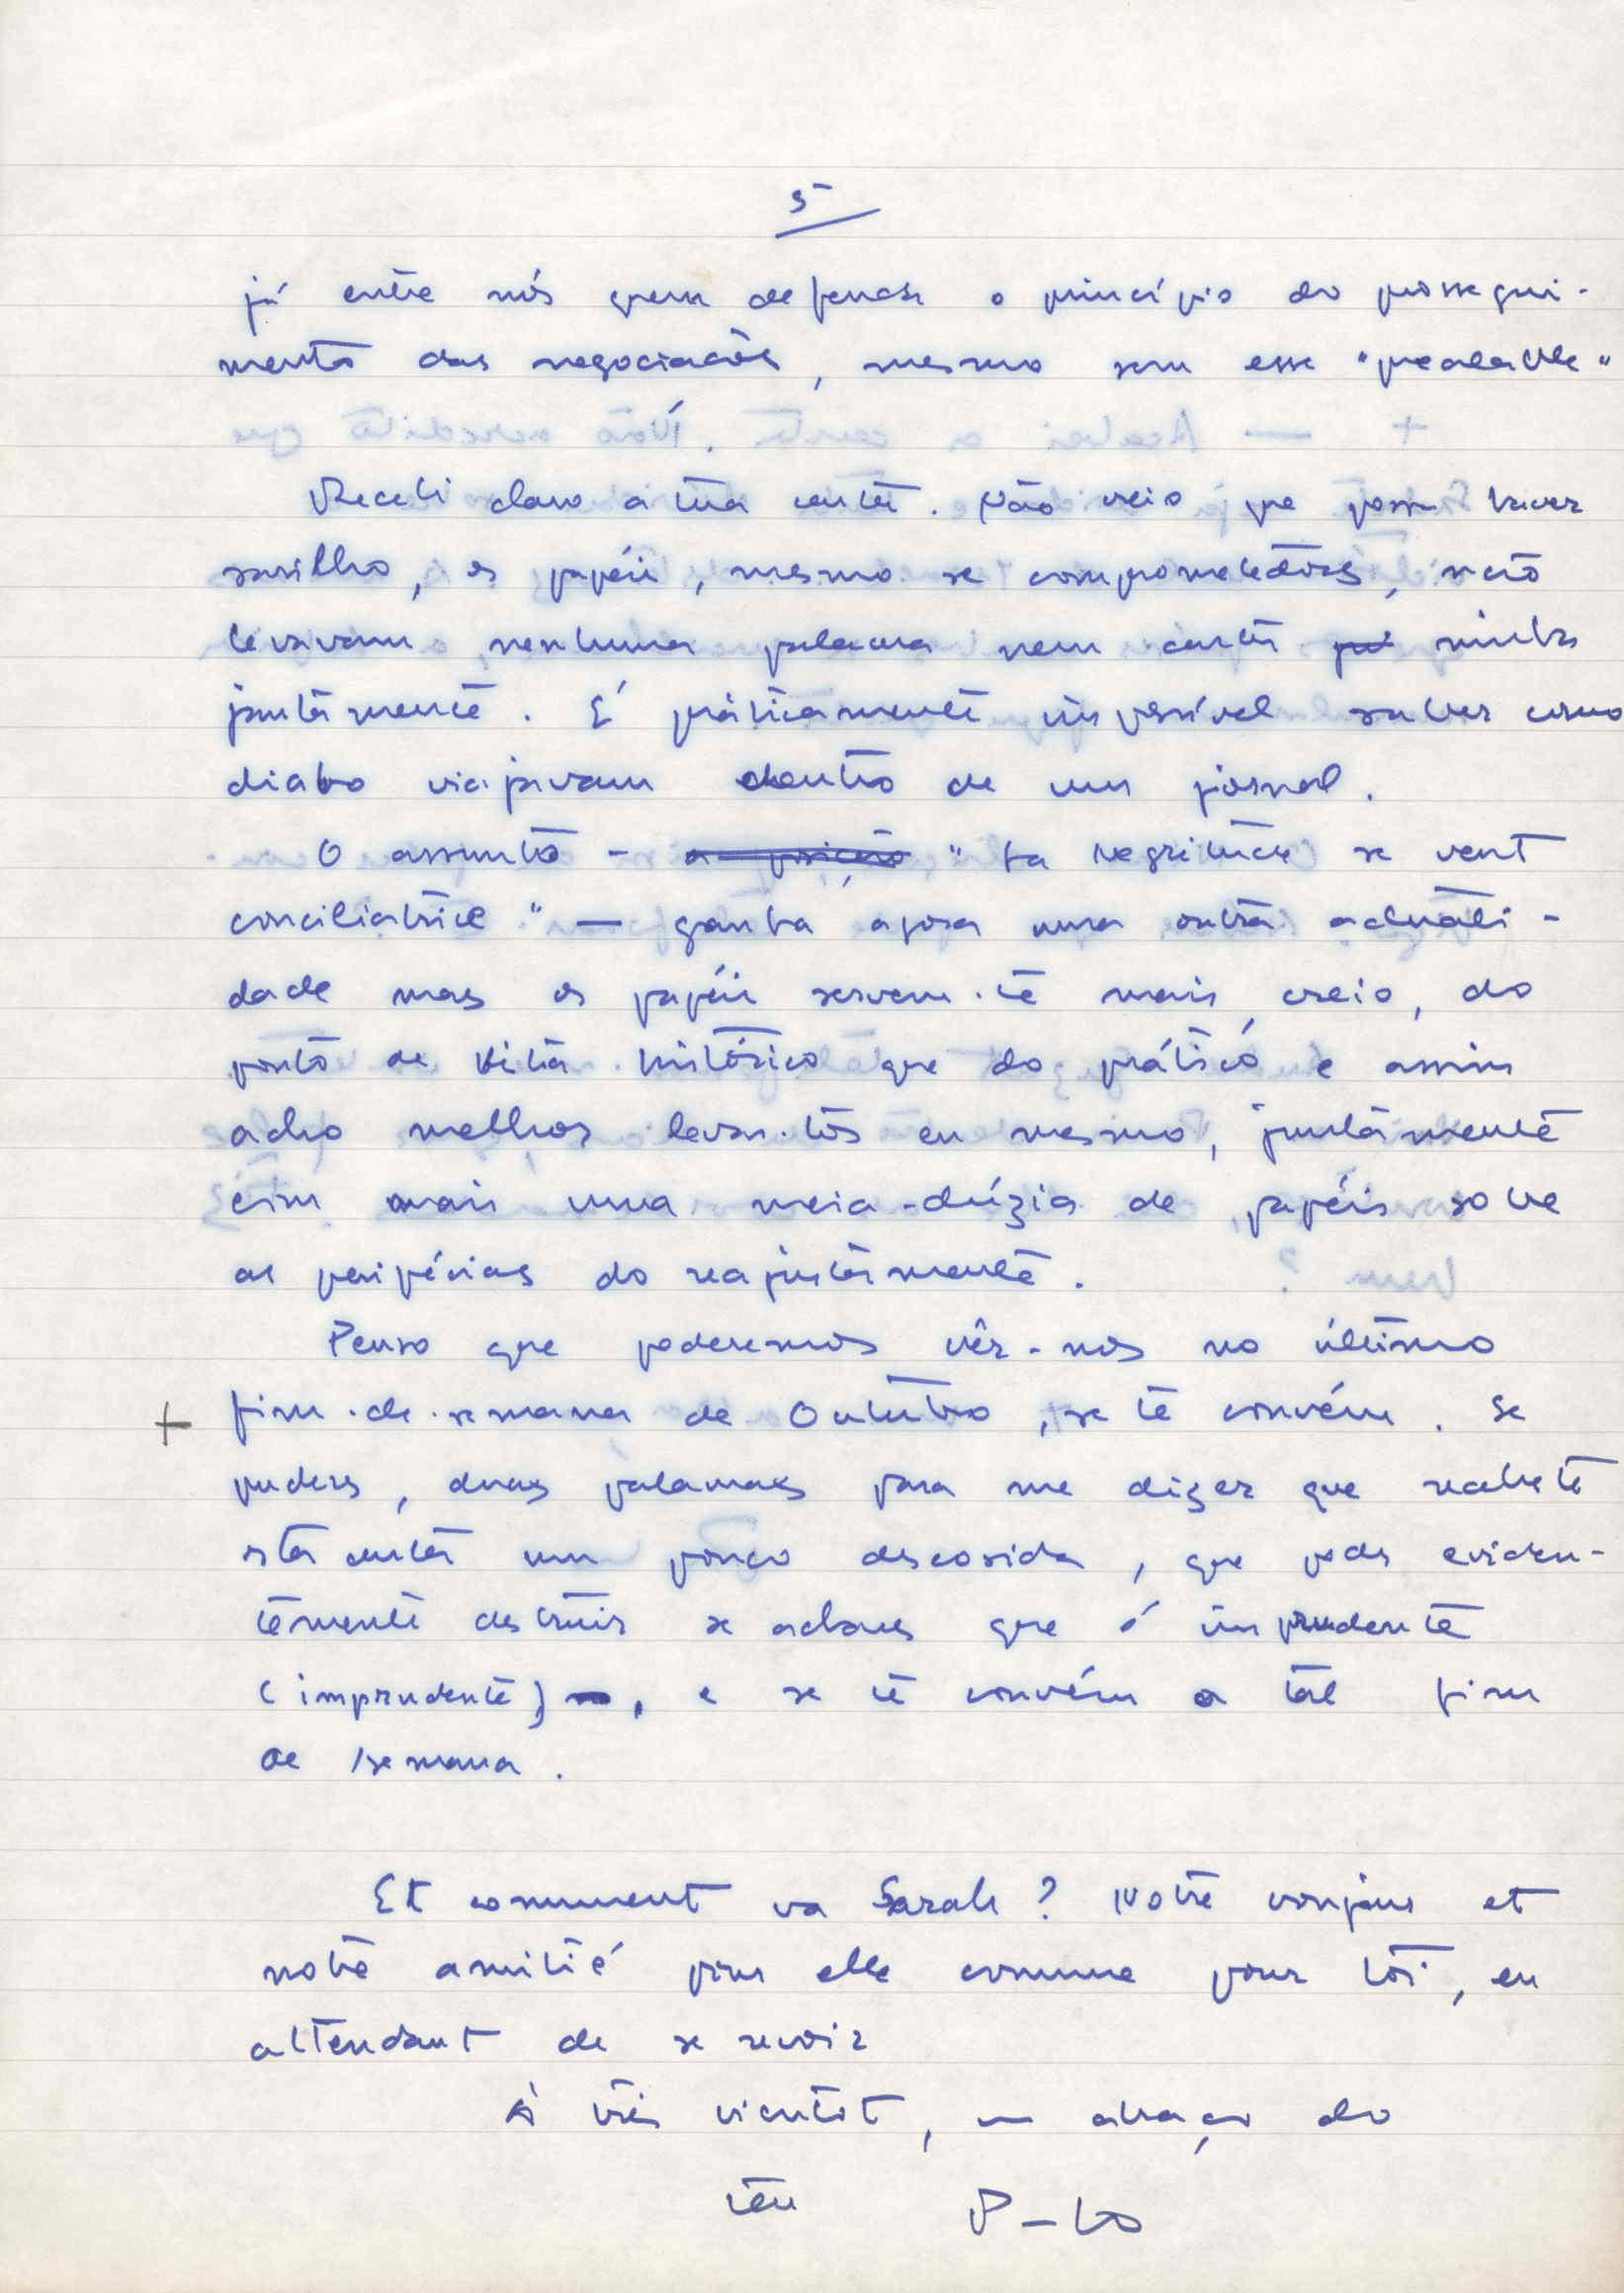 5
já entre nós quem defenda o princípio do prossegui-
mento das negociações, mesmo sem esse "préalable"
Recebi claro a tua carta. Não creio que possa haver
sarilho, os papéis, mesmo se comprometedores, não
levavam nenhuma palavra nem carta minha
juntamente. É práticamente impossível saber como
diabo viajavam dentro de um jornal.
O assunto - a posição "la négritude se veut
conciliatrice" — ganha agora uma outra actuali-
dade mas os papéis servem-te mais, creio, do
ponto de vista histórico que do prático e assim
acho melhor levar-tos eu mesmo, juntamente
com mais uma meia-dúzia de papéis sobre
as peripécias do reajustamento.
Penso que poderemos vêr-nos no último
+ fim-de-semana de Outubro, se te convém. Se
puderes, duas palavras para me dizer que recebeste
esta carta um pouco descosida, que podes eviden-
temente destruir se achares que é imprudente
(imprudente), e se te convém o tal fim
de semana.
Et comment va Sarah? Notre bonjour et
notre amitié pour elle comme pour toi, en
attendant de se revoir
À très bientôt, um abraço do
teu